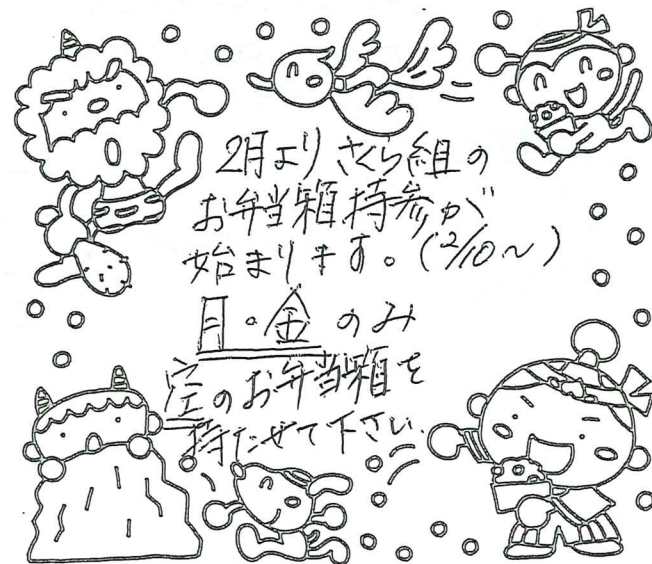 2月より さくら組の
お弁当箱持参が
始まります。(2/10~)
月・金 のみ
空のお弁当箱を
持たせて下さい.